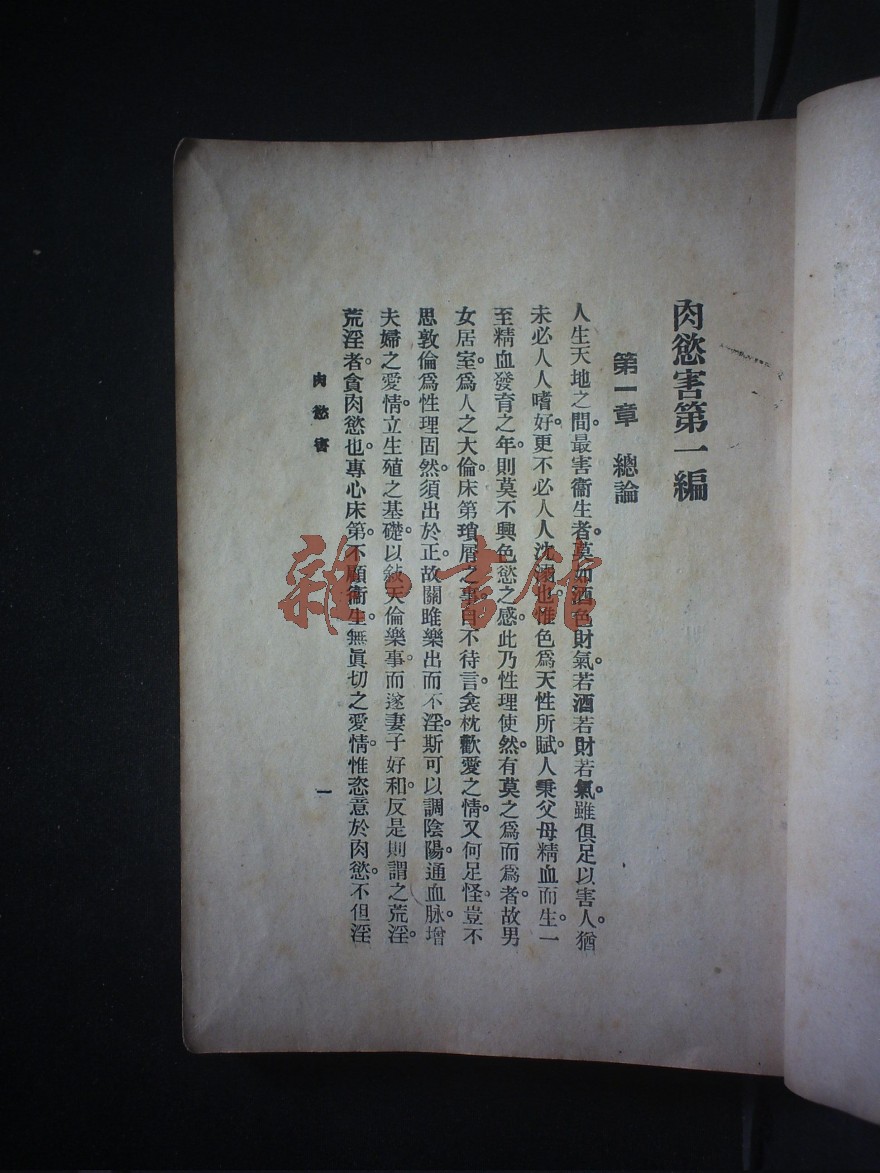 肉慾害第一編
第一章　總論
人生天地之間。最害衞生者。莫如酒色財氣。若酒若財若氣。雖俱足以害人。猶
未必人人嗜好。更不必人人沈溺也。惟色爲天性所賦。人秉父母精血而生。一
至精血發育之年。則莫不興色慾之感。此乃性理使然。有莫之爲而爲者。故男
女居室。爲人之大倫。床第瑣屑之事。自不待言。衾枕歡愛之情。又何足怪。豈不
思敦倫爲性理固然。須出於正。故關雎樂出而不淫。斯可以調陰陽。通血脉。增
夫婦之愛情。立生殖之基礎。以敍天倫樂事。而遂妻子好和。反是則謂之荒淫。
荒淫者。貪肉慾也。專心床第。不顧衞生。無眞切之愛情。惟恣意於肉慾。不但淫
肉慾害
一
雜·書館